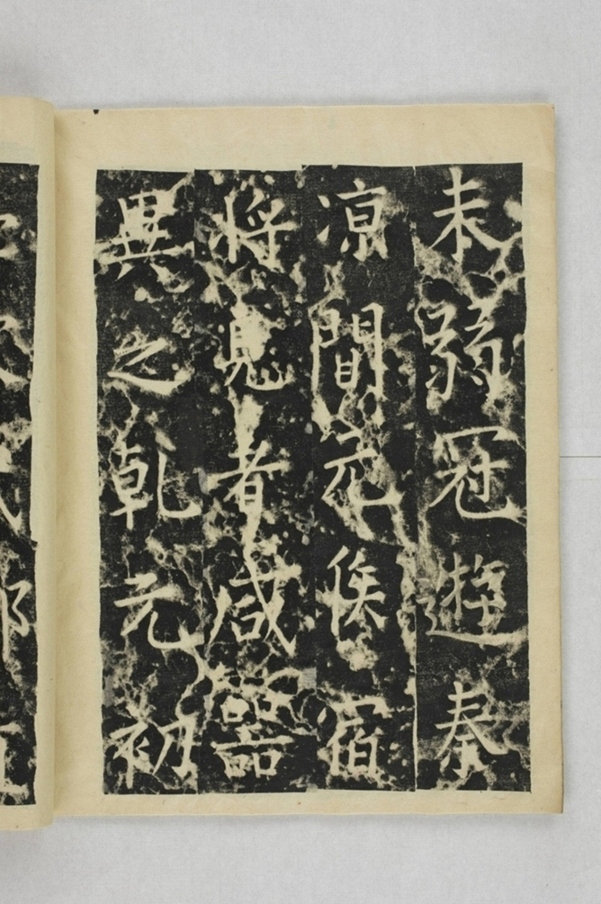 未弱冠遊秦
涼間元侯宿
將見者咸器
異之乾元初